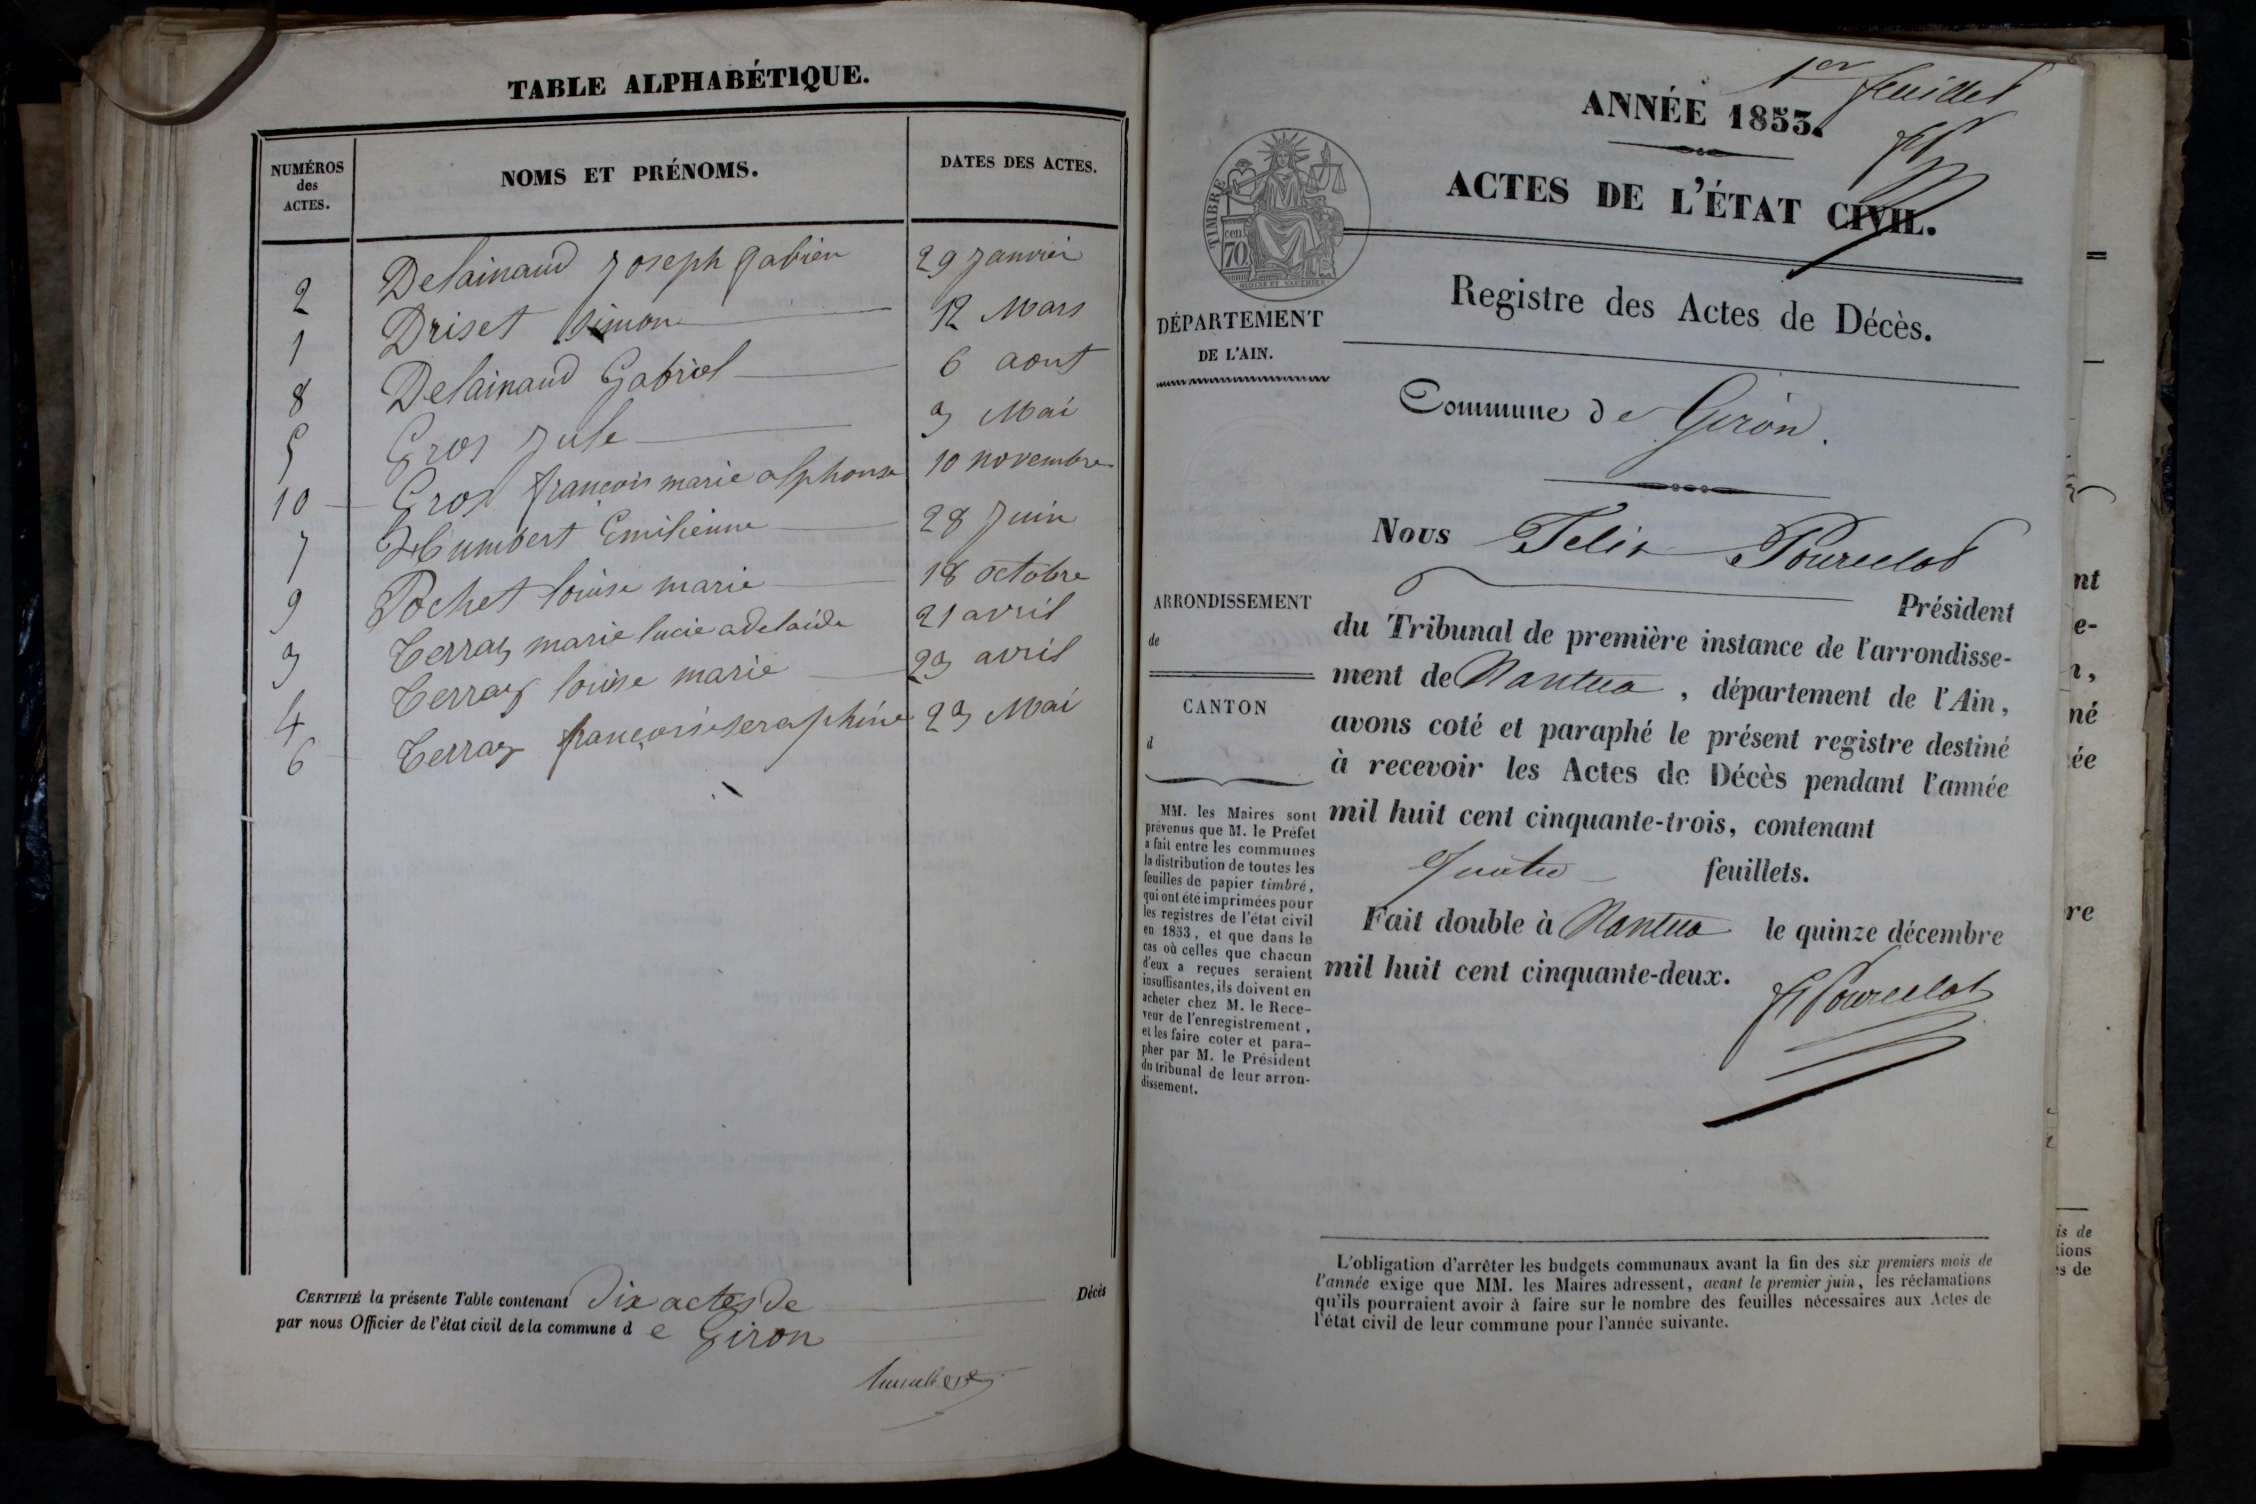 TABLE ALPHABÉTIQUE.
NUMÉROS des ACTES.
NOMS ET PRÉNOMS.
DATES DES ACTES.
2 Delainaud Joseph gabien 29 Janvier
1 Driset Simon 12 Mars
8 Delainaud Gabriel 6 aout
5 Gros Jule 3 Mai
10 Gros françois marie alphonse 10 novembre
7 Humbert Emilienne 28 Juin
9 Pochet louise marie 18 octobre
3 Terraz marie lucie adelaide 21 avril
4 Terraz louise marie 23 avril
6 Terraz françoise seraphine 23 Mai
CERTIFIÉ la présente Table contenant Dix actes de Décès
par nous Officier de l'état civil de la commune d e Giron
humbert
1er feuillet
ANNÉE 1853.
ACTES DE L'ÉTAT CIVIL.
TIMBRE
70
cent
Registre des Actes de Décès.
DÉPARTEMENT
DE L'AIN.
Commune de Giron.
Nous Felix Pourcelot
Président
ARRONDISSEMENT
de
CANTON
d
du Tribunal de première instance de l'arrondisse-
ment de Nantua, département de l'Ain,
avons coté et paraphé le présent registre destiné
à recevoir les Actes de Décès pendant l'année
mil huit cent cinquante-trois, contenant
quatre feuillets.
Fait double à Nantua le quinze décembre
mil huit cent cinquante-deux.
F Pourcelot
MM. les Maires sont
prévenus que M. le Préfet
a fait entre les communes
la distribution de toutes les
feuilles de papier timbré,
qui ont été imprimées pour
les registres de l'état civil
en 1853, et que dans le
cas où celles que chacun
d'eux a reçues seraient
insuffisantes, ils doivent en
acheter chez M. le Rece-
veur de l'enregistrement,
et les faire coter et para-
pher par M. le Président
du tribunal de leur arron-
dissement.
L'obligation d'arrêter les budgets communaux avant la fin des six premiers mois de
l'année exige que MM. les Maires adressent, avant le premier juin, les réclamations
qu'ils pourraient avoir à faire sur le nombre des feuilles nécessaires aux Actes de
l'état civil de leur commune pour l'année suivante.